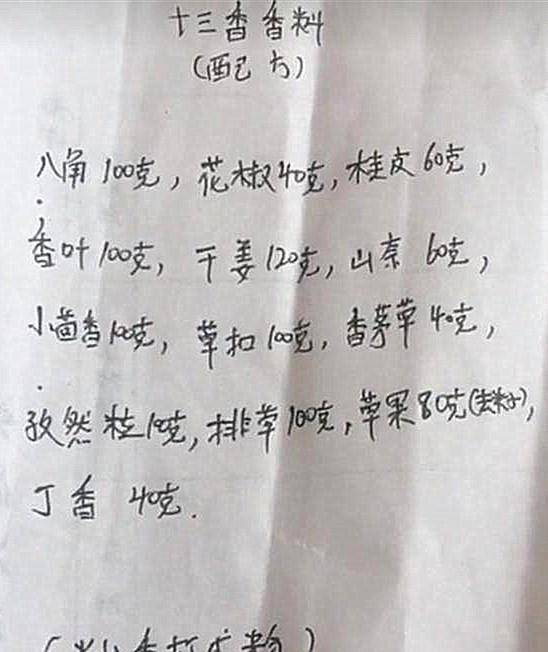 十三香香料
(配方)
八角100克，花椒40克，桂皮60克，
香叶100克，干姜120克，山奈60克，
小茴香100克，草扣100克，香茅草40克，
孜然粒100克，排草100克，草果80克(去籽)，
丁香 40克.